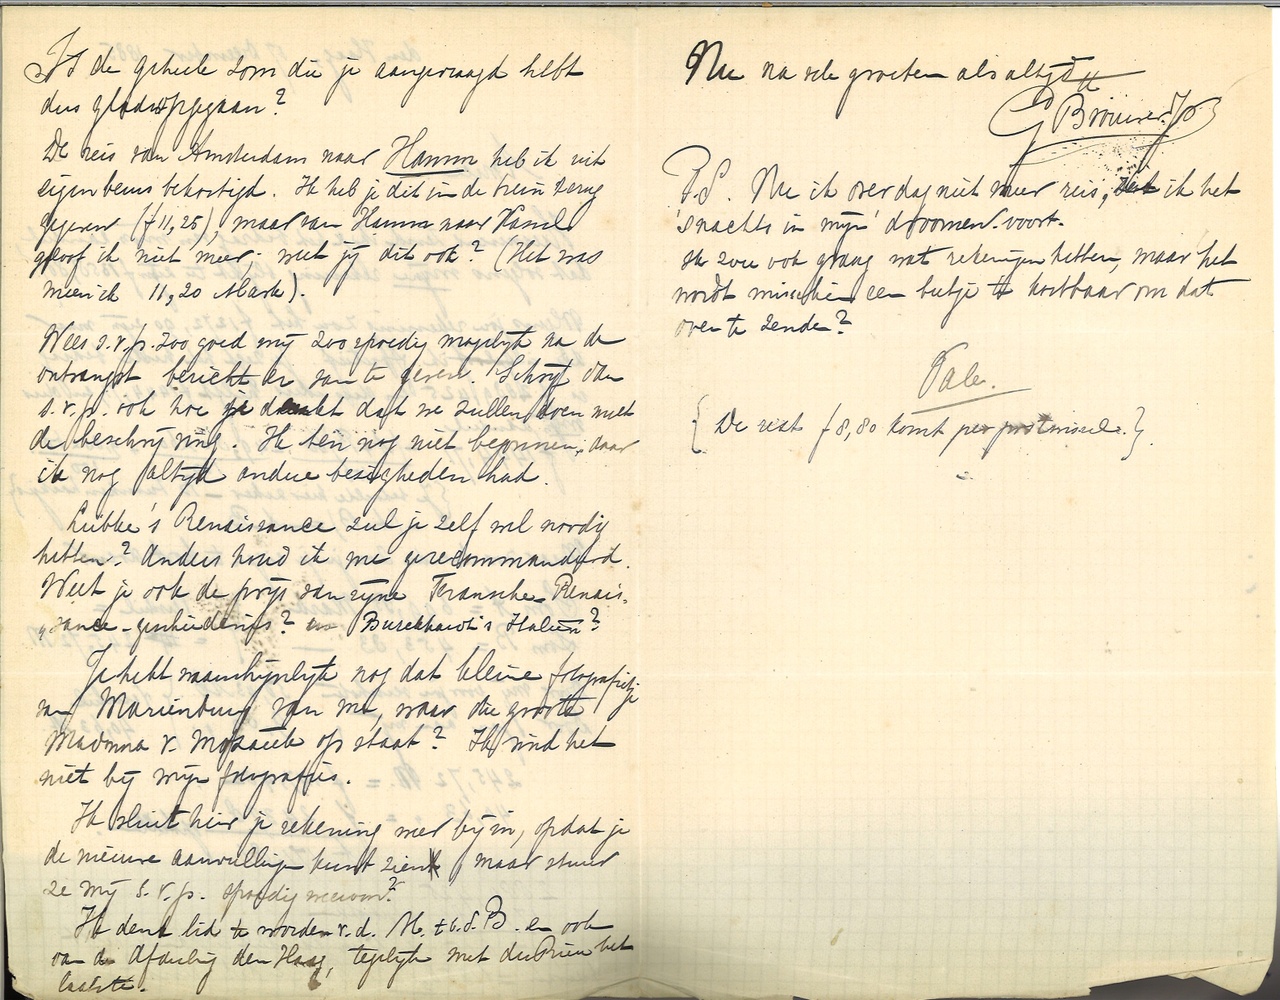 Is de geheele som die je aangevraagd hebt
dus glad opgegaan?
De reis van Amsterdam naar Hamm heb ik uit
eigen beurs bekostigd. Ik heb je dit in de trein terug
gegeven (f 11,25), maar van Hamm naar Kassel
geloof ik niet meer; weet jij dit ook? (Het was
meen ik 11,20 Mark).
Wees s.v.p. zoo goed mij zoo spoedig mogelijk na de
ontvangst bericht er van te geven. Schrijf dan
s.v.p. ook hoe je denkt dat we zullen doen met
de beschrijving. Ik ben nog niet begonnen, daar
ik nog altijd andere bezigheden had.
Lübke's Renaissance zul je zelf wel noodig
hebben? Anders houd ik me gerecommandeerd.
Weet je ook de prijs van zijne Fransche Renais-
„sance-geschiedenis? en Burckhardt's Italien?
Je hebt waarschijnlijk nog dat kleine fotografietje
van Marienburg van me, waar die groote
Madonna v. Mozaïek op staat? Ik vind het
niet bij mijn fotografies.
Ik sluit hier je rekening weer bij in, opdat je
de nieuwe aanvullingen kunt zien, maar stuur
ze mij s.v.p. spoedig weerom?
Ik denk lid te worden v.d. M. t. b. d. B. en ook
van de Afdeeling den Haag, tegelijk met de Bruin het
laatste.
Nu na vele groeten als altijd
G Brouwer Jr
P.S. Nu ik over dag niet meer reis, zet ik het
'snachts in mijn droomen voort.
Ik zou ook graag wat tekeningen hebben, maar het
wordt misschien een beetje te kostbaar om dat
over te zenden?
Vale.
{De rest f 8,80 komt per postwissel.}